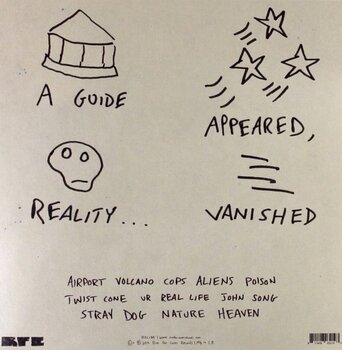 A GUIDE
APPEARED,
REALITY...
VANISHED
AIRPORT VOLCANO COPS ALIENS POISON
TWIST CONE UR REAL LIFE JOHN SONG
STRAY DOG NATURE HEAVEN